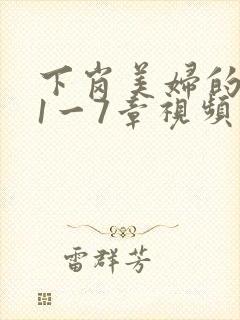 下岗美婦的
1一7章視頻
雷群芳